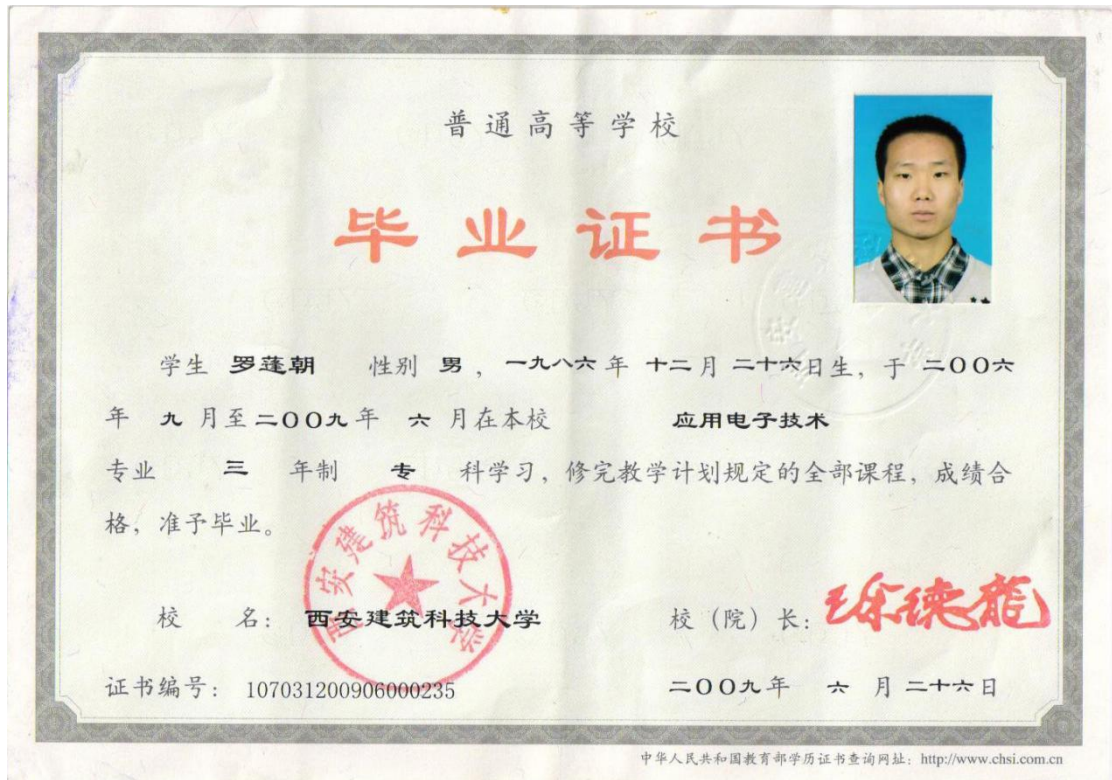 普通高等学校
毕业证书
学生 罗蓬朝 性别 男 , 一九八六 年 十二 月 二十六日生, 于 二00六
年 九 月至二00九年 六 月在本校 应用电子技术
专业 三 年制 专 科学习, 修完教学计划规定的全部课程, 成绩合
格, 准予毕业。
西安建筑科技大学
校 名: 西安建筑科技大学 校(院)长: 徐德龙
证书编号: 107031200906000235 二00九年 六 月 二十六日
中华人民共和国教育部学历证书查询网址: http://www.chsi.com.cn